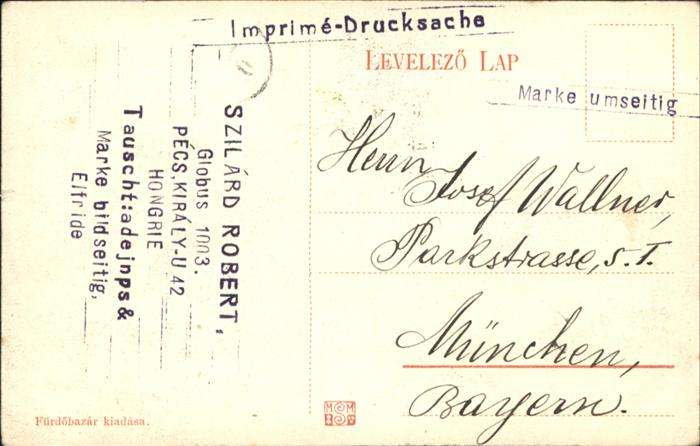 Imprimé-Drucksache
LEVELEZŐ LAP
Marke umseitig
SZILÁRD ROBERT,
Globus 1003.
PÉCS, KIRÁLY-U 42
HONGRIE
Tauscht:adejnps&
Marke bildseitig,
Elfride
Herrn Josef Wallner,
Parkstrasse, 5.I.
München,
Bayern.
Fürdőbazár kiadása.